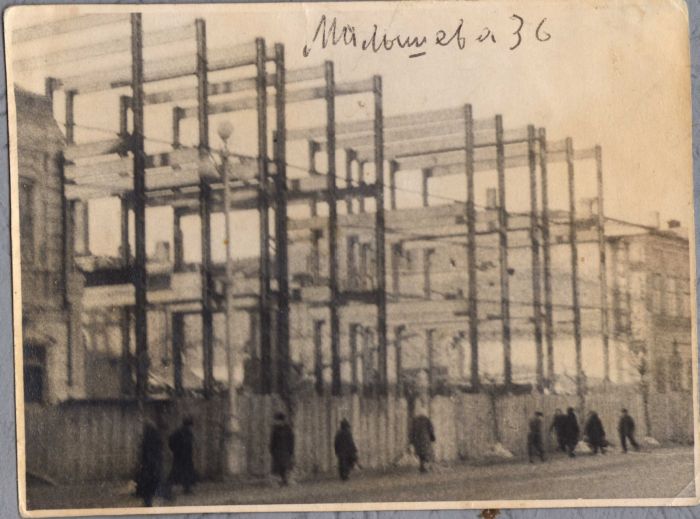 Малышева 36